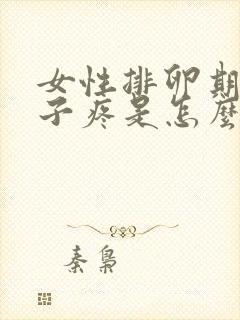 女性排卵期
子疼是怎麼
秦梟